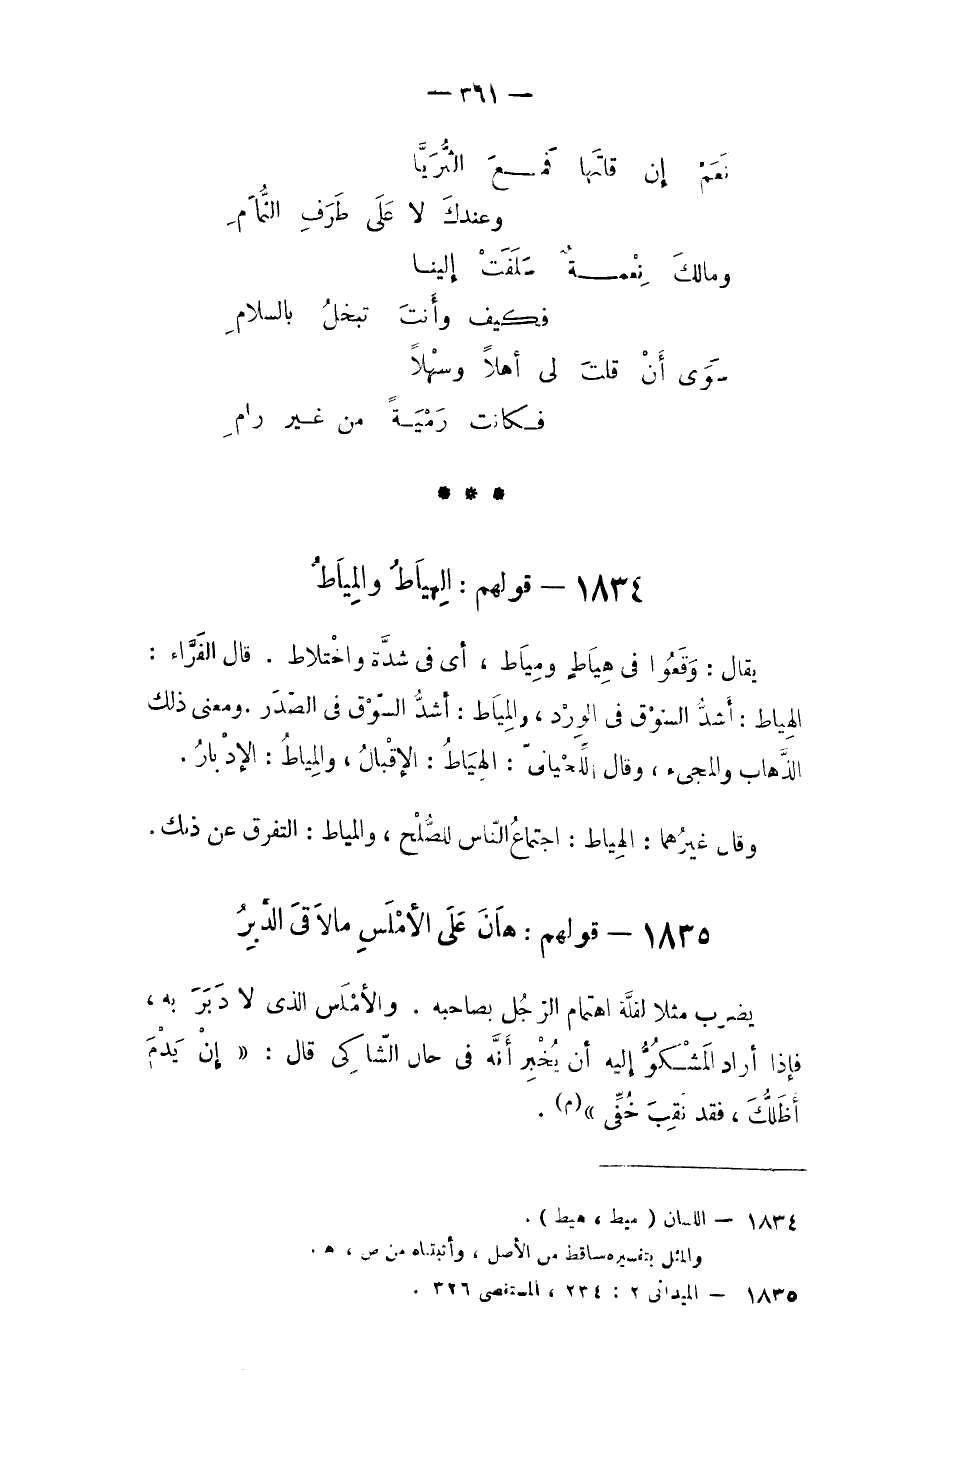 — ٣٦١ —
نَعَمْ إن قلتَها فمـــعَ الثُّرَيَّا
وعندكَ لا عَلَى طَرَفِ الثُّمَامِ
ومالكَ نِعْمــــةٌ سَلَفَتْ إلينــا
فكيف وأَنتَ تبخلُ بالسلامِ
سِوَى أَنْ قلتَ لى أهلاً وسهْلاً
فـكانت رَمْيَـةً من غـير رامِ
* * *
١٨٣٤ — قولهم : الهِيَاطُ والمِيَاطُ
يقال : وَقَعُوا فى هِيَاطٍ ومِيَاط ، أى فى شدَّة واخْتلاط . قال الفَرَّاء :
الهِياط : أَشدُّ السَّوْق فى الوِرْد ، والمِيَاط : أشدُّ السَّوْق فى الصَّدَر . ومعنى ذلك
الذَّهاب والمجىء ، وقال اللِّحْيانىّ : الهِيَاطُ : الإقْبالُ ، والمِياطُ : الإدْبارُ .
وقال غيرُهما : الهِياط : اجتماعُ النّاس للصُّلْح ، والمياط : التفرق عن ذلك .
١٨٣٥ — قولهم : هَانَ عَلَى الأَمْلَسِ مالاَقىَ الدَّبِرُ
يضرب مثلا لقلَّة اهتمام الرّجُل بصاحبه . والأَمْلَس الذى لا دَبَرَ به ،
فإذا أراد المَشْـكُوُّ إليه أن يُخْبِر أَنَّه فى حال الشّاكِى قال : « إنْ يَدْمَ
أَظَلُّكَ ، فقد نَقِبَ خُفِّى »(م) .
١٨٣٤ — اللسان ( ميط ، هيط ) .
والمثل بتفسيره ساقط من الأصل ، وأثبتناه من ص ، هـ .
١٨٣٥ — الميدانى ٢ : ٢٣٤ ، المستقصى ٣٢٦ .